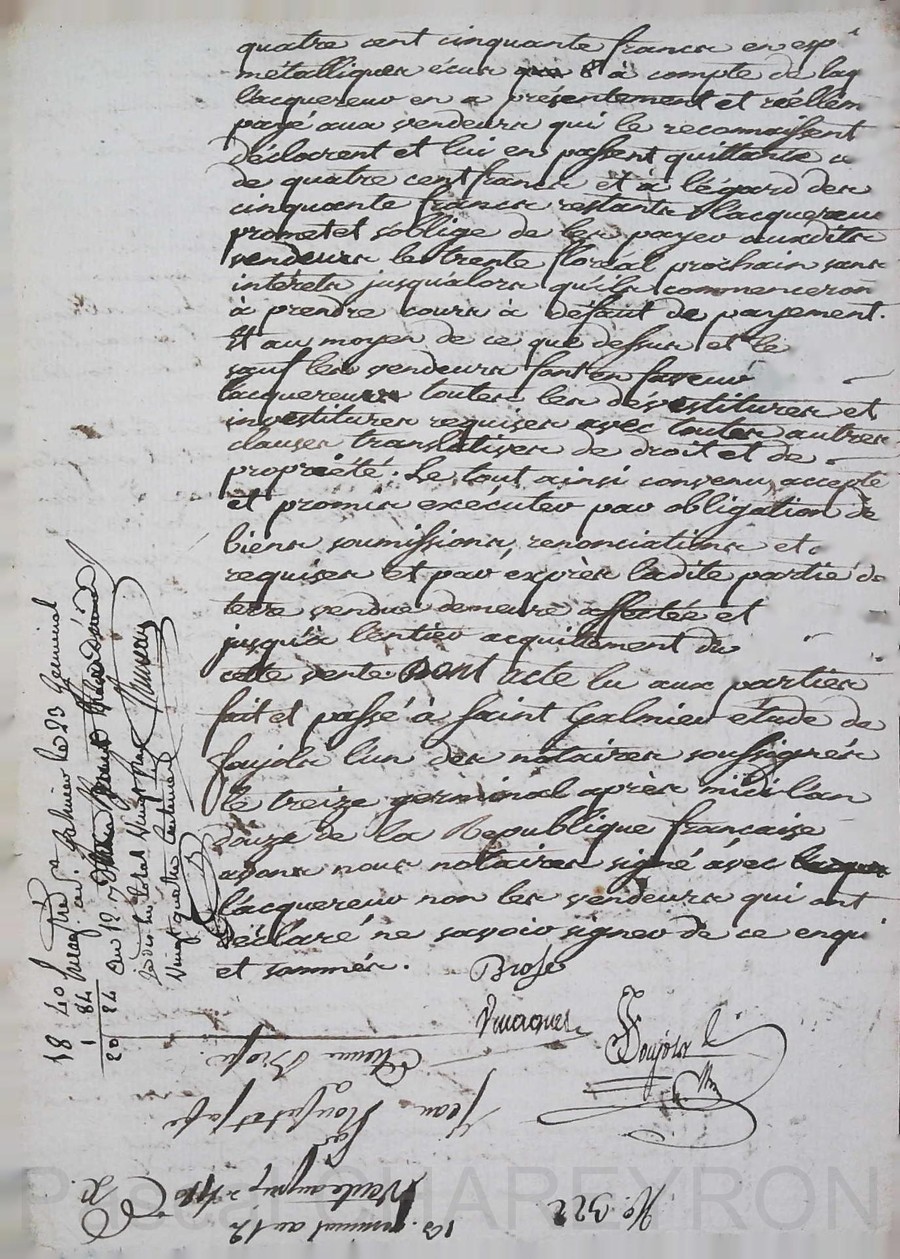 quatre cent cinquante francs en esp
métalliques écus à compte de laq
lacquereur en a présentement et réellem
payé aux vendeurs qui le reconnaissent
déclarent et lui en passent quittance
de quatre cent francs et à légard des
cinquante francs restants lacquereur
promet et soblige de les payer auxdits
vendeurs le trente floréal prochain sans
intérets jusqualors quils commenceron
à prendre cours à défaut de payement.
Et au moyen de ce que dessus et de
sauf les vendeurs font en faveur
lacquereur toutes les dévestitures et
investitures requises avec toutes autres
clauses translatives de droit et de
propriété. Le tout ainsi convenu, accepté
et promis exécuter par obligation de
biens soumissions, renonciations et c
requises et par exprès ladite partie de
terre vendue demeure affectée et
jusqu'à lentier acquittement du
cette vente Dont Acte lu aux parties
fait et passé à Saint Galmier étude de
Foujols l'un des notaires soussignés
le treize germinal après midi lan
douze de la République francaise
avons nous notaires signé avec
lacquereur non les vendeurs qui ont
déclaré ne savoir signer de ce enqui
et sommés.
Brosse
Foujols
18 40
1 84
20 24
Galmier le 23 Germinal
an 12
Vingt quatre Centimes
Etienne Brosse
Jean
13. germinal an 12
No. 322
Pascal CHAPEYRON